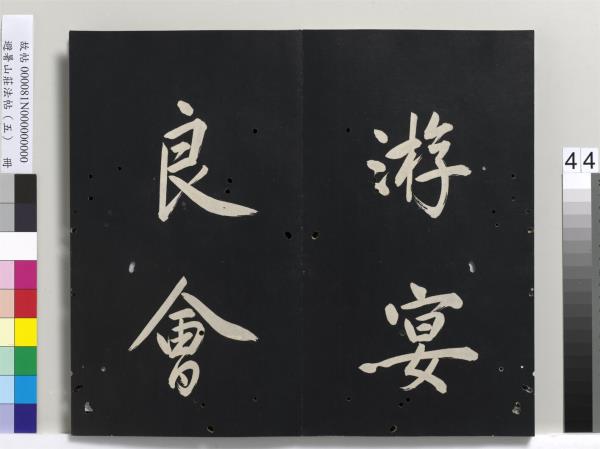 游宴
良會
故帖 000081N000000000
避暑山莊法帖（五） 冊
44